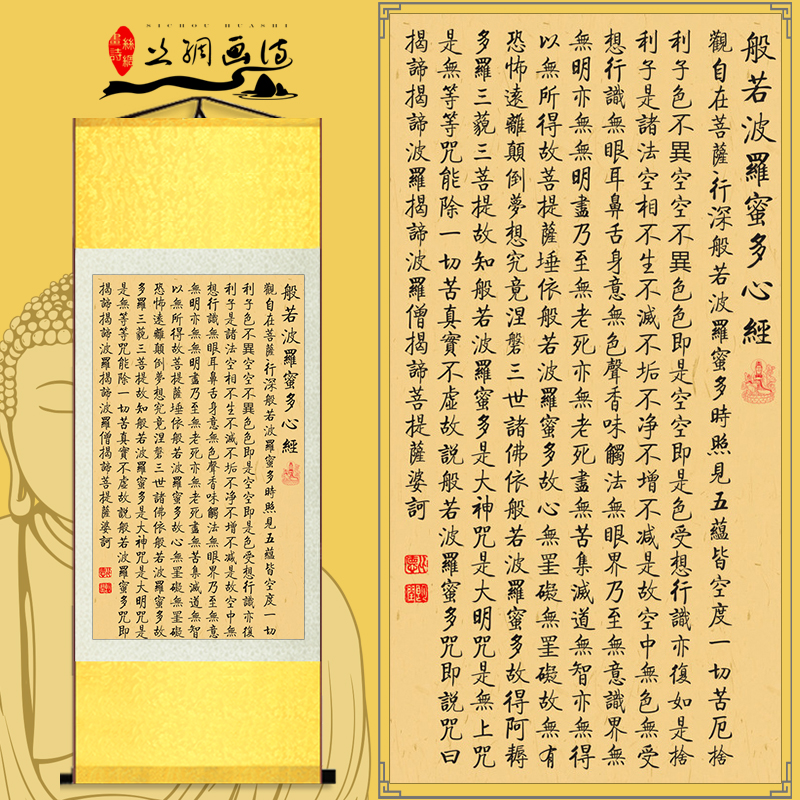 SICHOU HUASHI
絲綢畫詩
丝綢画诗
般若波羅蜜多心經
觀自在菩薩行深般若波羅蜜多時照見五蘊皆空度一切
利子色不異空空不異色色即是空空即是色受想行識亦復
利子是諸法空相不生不滅不垢不净不增不減是故空中無
想行識無眼耳鼻舌身意無色聲香味觸法無眼界乃至無意
無明亦無無明盡乃至無老死亦無老死盡無苦集滅道無智
以無所得故菩提薩埵依般若波羅蜜多故心無罣礙無罣礙
恐怖遠離顛倒夢想究竟涅磐三世諸佛依般若波羅蜜多故
多羅三藐三菩提故知般若波羅蜜多是大神咒是大明咒是
是無等等咒能除一切苦真實不虛故說般若波羅蜜多咒即
揭諦揭諦波羅揭諦波羅僧揭諦菩提薩婆訶
般若波羅蜜多心經
觀自在菩薩行深般若波羅蜜多時照見五蘊皆空度一切苦厄捨
利子色不異空空不異色色即是空空即是色受想行識亦復如是捨
利子是諸法空相不生不滅不垢不净不增不減是故空中無色無受
想行識無眼耳鼻舌身意無色聲香味觸法無眼界乃至無意識界無
無明亦無無明盡乃至無老死亦無老死盡無苦集滅道無智亦無得
以無所得故菩提薩埵依般若波羅蜜多故心無罣礙無罣礙故無有
恐怖遠離顛倒夢想究竟涅磐三世諸佛依般若波羅蜜多故得阿耨
多羅三藐三菩提故知般若波羅蜜多是大神咒是大明咒是無上咒
是無等等咒能除一切苦真實不虛故說般若波羅蜜多咒即說咒曰
揭諦揭諦波羅揭諦波羅僧揭諦菩提薩婆訶